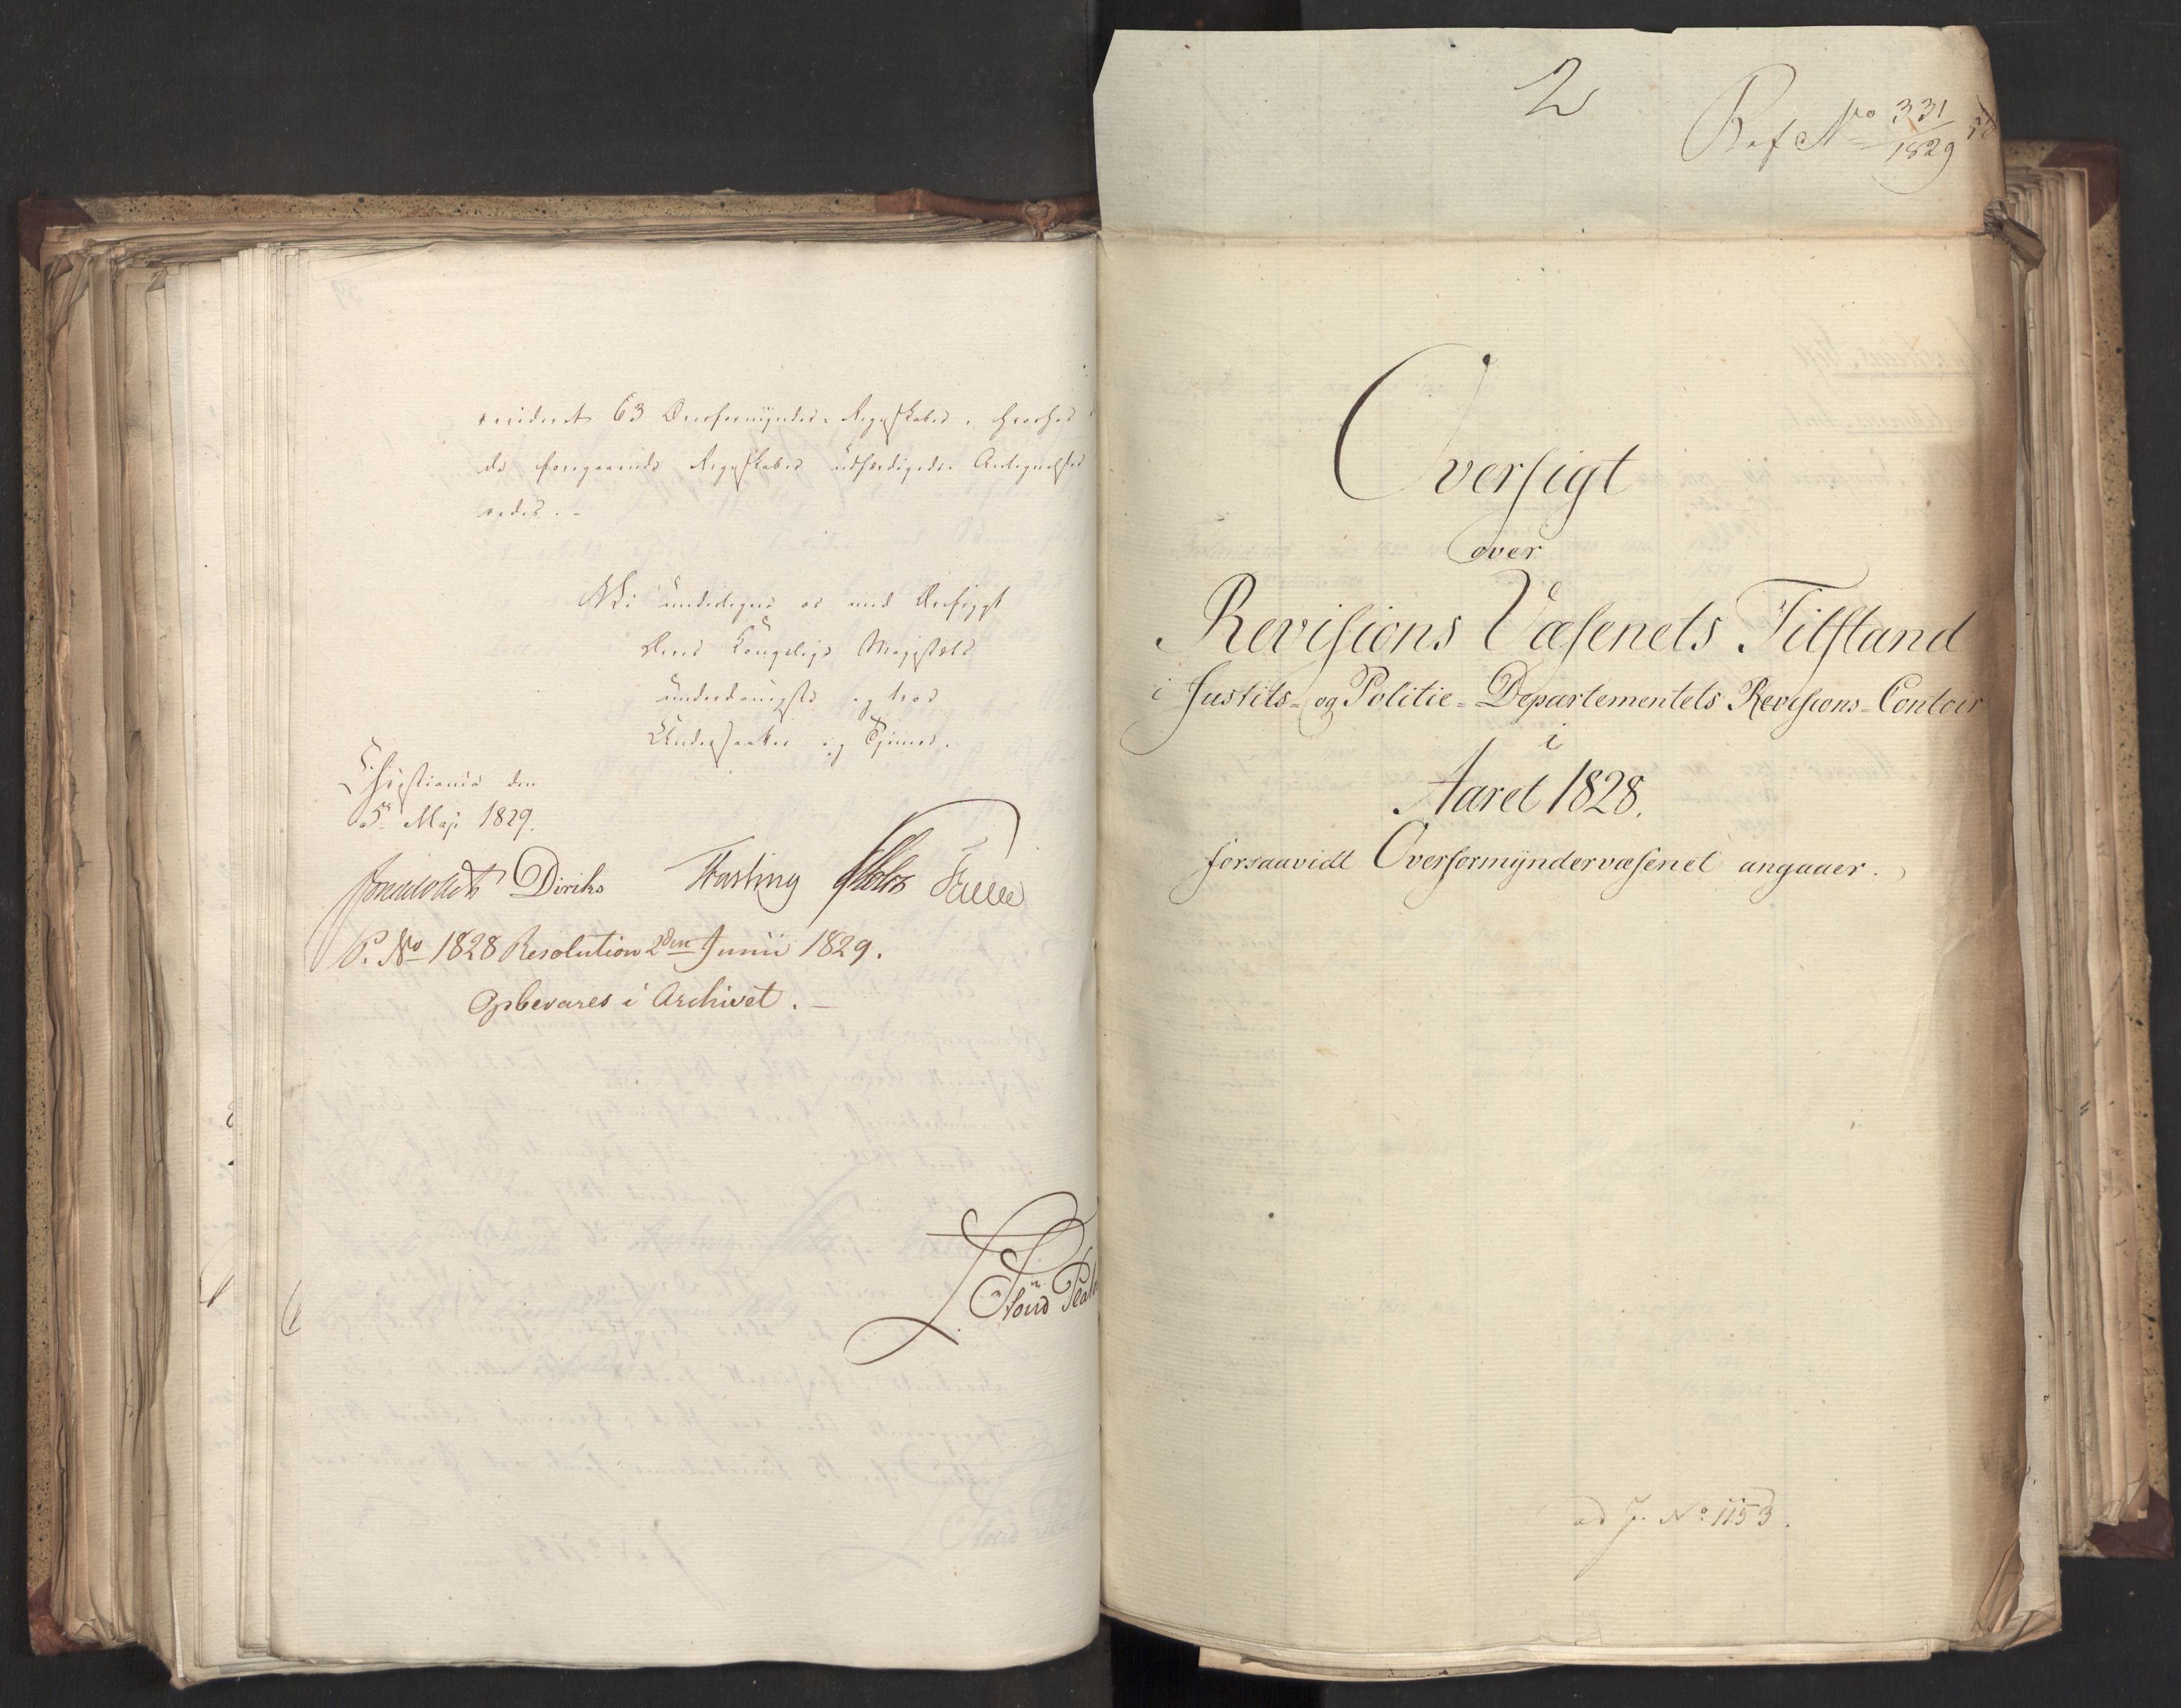 revideret 63 Overformynder-Regnskaber, hvorhos
de foregaaende Regnskaber udfærdigede Antegnelser
Vi undertegne os med Ærefrygt
Deres Kongelige Majestæts
underdanigste og troe
Undersaatter og Tjenere.
Christiania den
5te Maji 1829.
Diriks Fasting Holst
P. No 1828 Resolution 2den Junii 1829.
Opbevares i Archivet. —
2
Ref No 331/1829
Oversigt
over
Revisions Væsenets Tilstand
i Justits- og Politie-Departementets Revisions-Contoir
i
Aaret 1828.
forsaavidt Overformyndervæsenet angaaer.
ad J. No 1153.